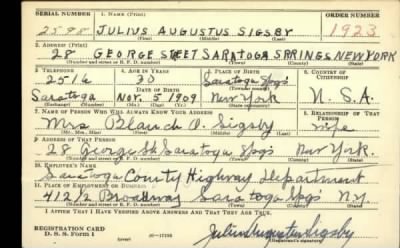 SERIAL NUMBER 1. NAME (Print) ORDER NUMBER
2598 JULIUS AUGUSTUS SIGSBY 1923
(First) (Middle) (Last)
2. ADDRESS (Print)
28 GEORGE STREET SARATOGA SPRINGS NEW YORK
(Number and street or R. F. D. number) (Town) (County) (State)
3. TELEPHONE 4. AGE IN YEARS 5. PLACE OF BIRTH 6. COUNTRY OF CITIZENSHIP
2516 30 Saratoga Spgs
DATE OF BIRTH
Saratoga Nov. 1909 New York U. S. A.
(Exchange) (Mo.) (Day) (Yr.) (State or country)
7. NAME OF PERSON WHO WILL ALWAYS KNOW YOUR ADDRESS 8. RELATIONSHIP OF THAT PERSON
Mrs Blanch A. Sigsby wife
(Mr., Mrs., Miss) (First) (Middle) (Last)
9. ADDRESS OF THAT PERSON
28 George St Saratoga Spgs New York.
(Number and street or R. F. D. number) (Town) (County) (State)
10. EMPLOYER'S NAME
Saratoga County Highway Department
11. PLACE OF EMPLOYMENT OR BUSINESS
412 1/2 Broadway Saratoga Spgs N.Y.
(Number and street or R. F. D. number) (Town) (County) (State)
I AFFIRM THAT I HAVE VERIFIED ABOVE ANSWERS AND THAT THEY ARE TRUE.
REGISTRATION CARD
D. S. S. Form 1 Julius Augustus Sigsby
(Registrant's signature)